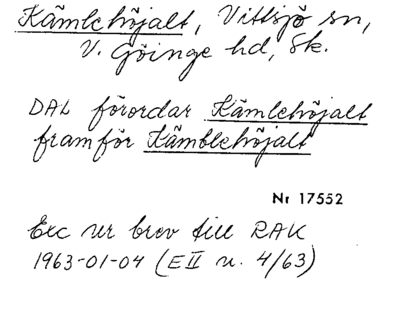 Kämlehöjalt, Vittsjö sn,
V. Göinge hd, Sk.
DAL förordar Kämlehöjalt
framför Kämblehöjalt
Nr 17552
Exc ur brev till RAK
1963-01-04 (E II u. 4/63)